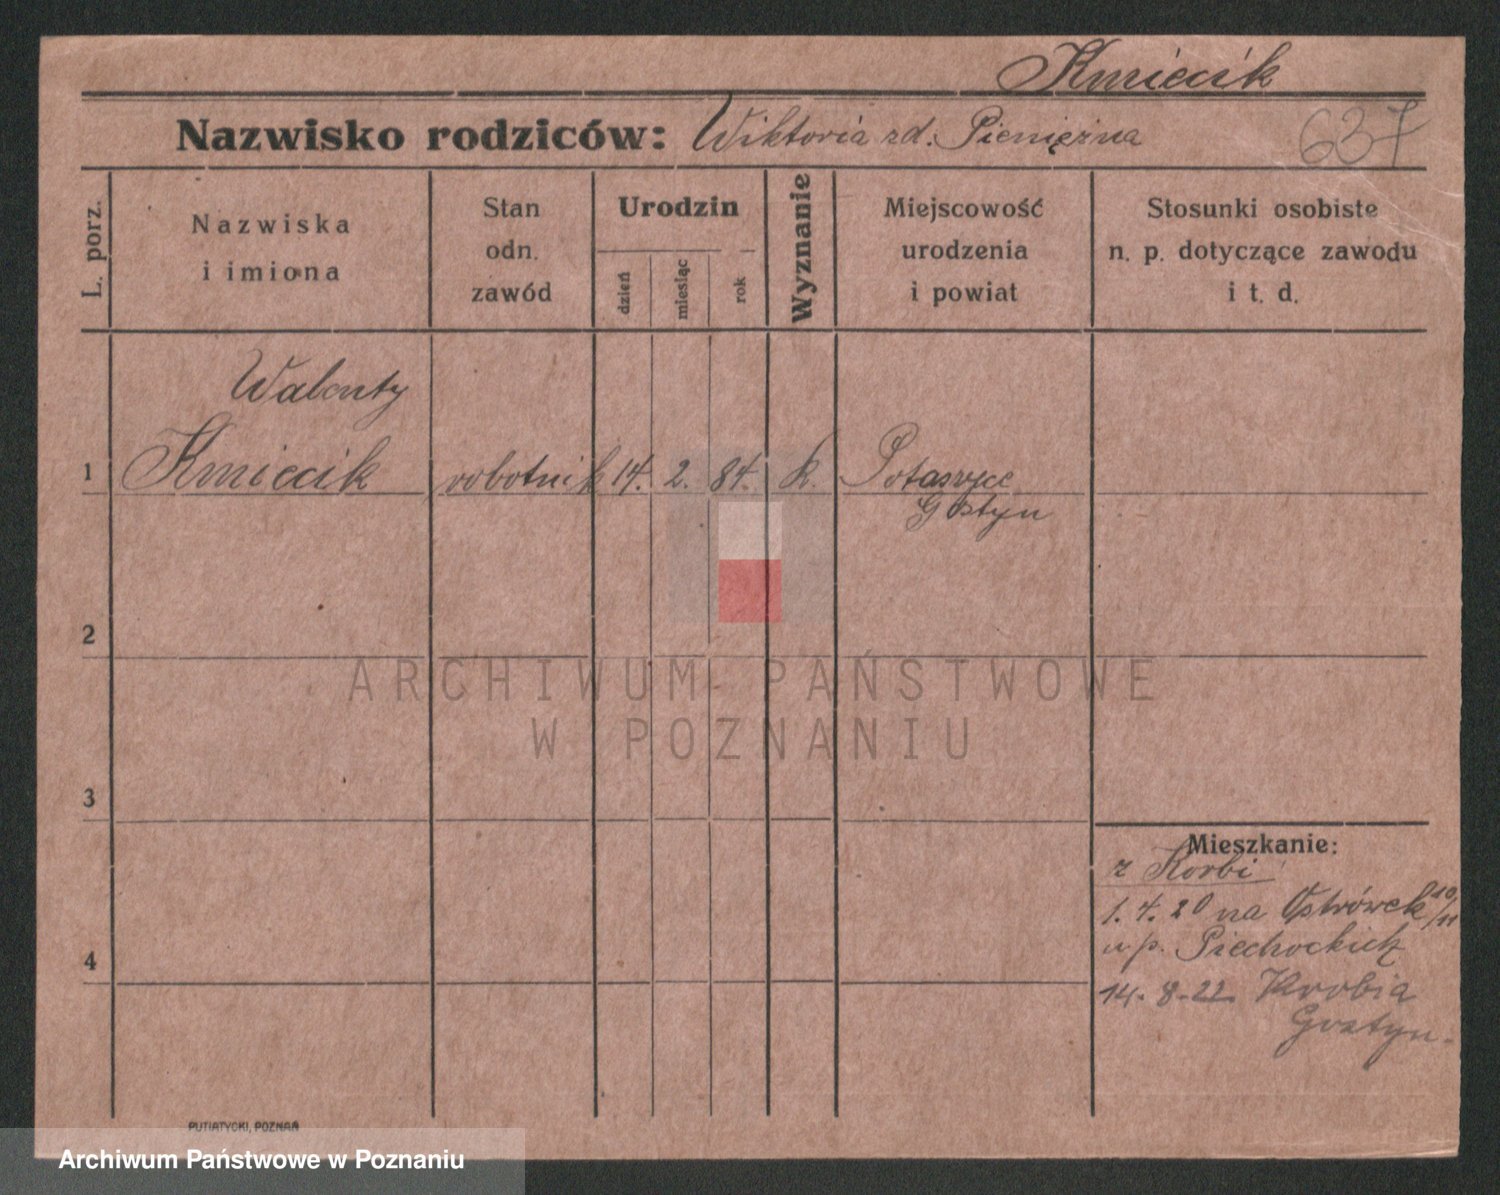 Kmiecik
Nazwisko rodziców: Wiktoria rd. Pieniężna 637
L. porz.
Nazwiska
i imiona
Stan
odn.
zawód
Urodzin
dzień
miesiąc
rok
Wyznanie
Miejscowość
urodzenia
i powiat
Stosunki osobiste
n. p. dotyczące zawodu
i t. d.
Walenty
1 Kmiecik robotnik 14. 2. 84. k. Potasryce
Gostyn
2
3
4
Mieszkanie:
z Korbi
1. 4. 20 na Ostrówek 10/11
u p. Piechockich
14. 8. 22 Krobia
Gostyn.
PUTIATYCKI, POZNAŃ
ARCHIWUM PAŃSTWOWE
W POZNANIU
Archiwum Państwowe w Poznaniu